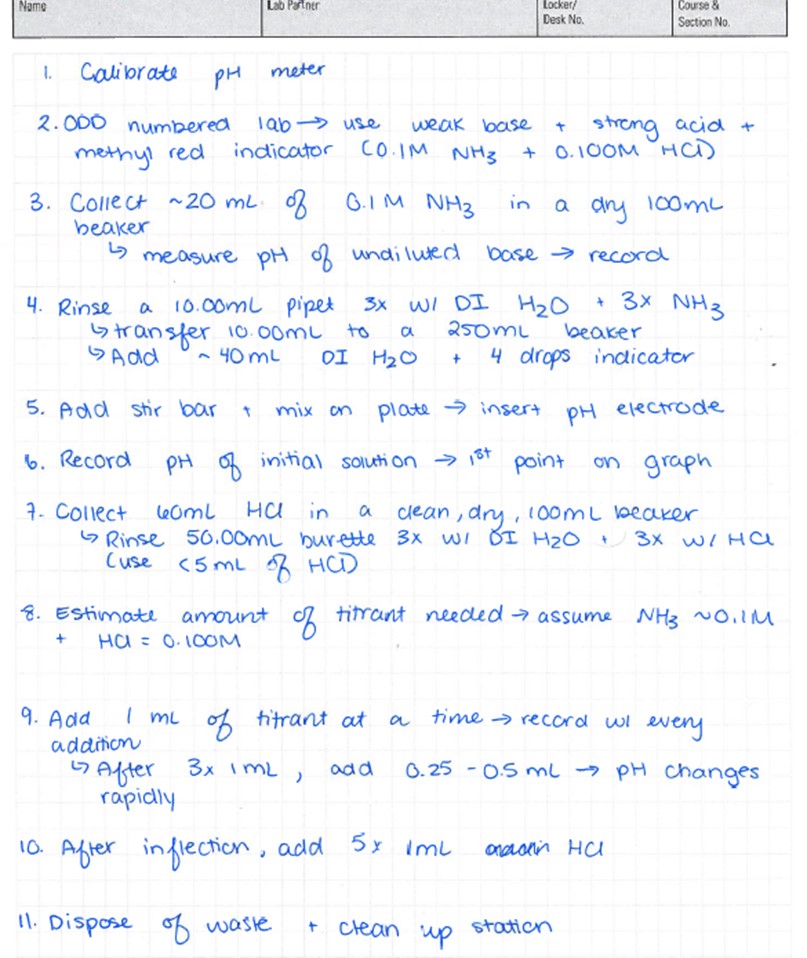 Name
Lab Partner
Locker/
Desk No.
Course &
Section No.
1. Calibrate pH meter
2. ODD numbered lab → use weak base + strong acid +
methyl red indicator (0.1M NH3 + 0.100M HCl)
3. Collect ~20 mL of 0.1M NH3 in a dry 100mL
beaker
↳ measure pH of undiluted base → record
4. Rinse a 10.00mL pipet 3x w/ DI H2O + 3x NH3
↳ transfer 10.00mL to a 250mL beaker
↳ Add ~40mL DI H2O + 4 drops indicator
5. Add stir bar + mix on plate → insert pH electrode
6. Record pH of initial solution → 1st point on graph
7. Collect 60mL HCl in a clean, dry, 100mL beaker
↳ Rinse 50.00mL burette 3x w/ DI H2O + 3x w/ HCl
(use <5mL of HCl)
8. Estimate amount of titrant needed → assume NH3 ~0.1M
+ HCl = 0.100M
9. Add 1 mL of titrant at a time → record w/ every
addition
↳ After 3x 1mL, add 0.25 - 0.5mL → pH changes
rapidly
10. After inflection, add 5x 1mL HCl
11. Dispose of waste + clean up station